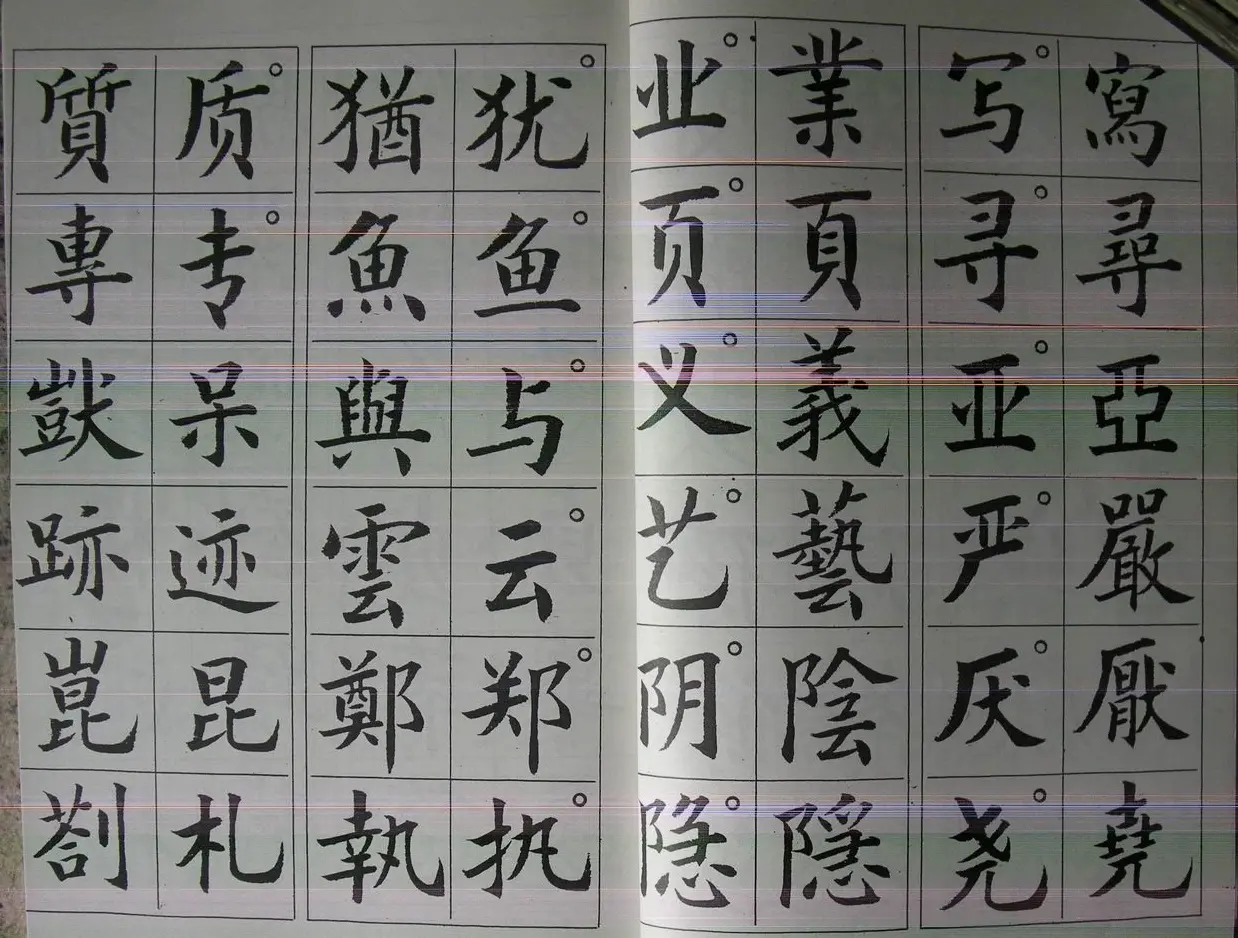 質 质 猶 犹 业 業 写 寫
專 专 魚 鱼 页 頁 寻 尋
獃 呆 與 与 义 義 亚 亞
跡 迹 雲 云 艺 藝 严 嚴
崑 昆 鄭 郑 阴 陰 厌 厭
剳 札 執 执 隐 隱 尧 堯